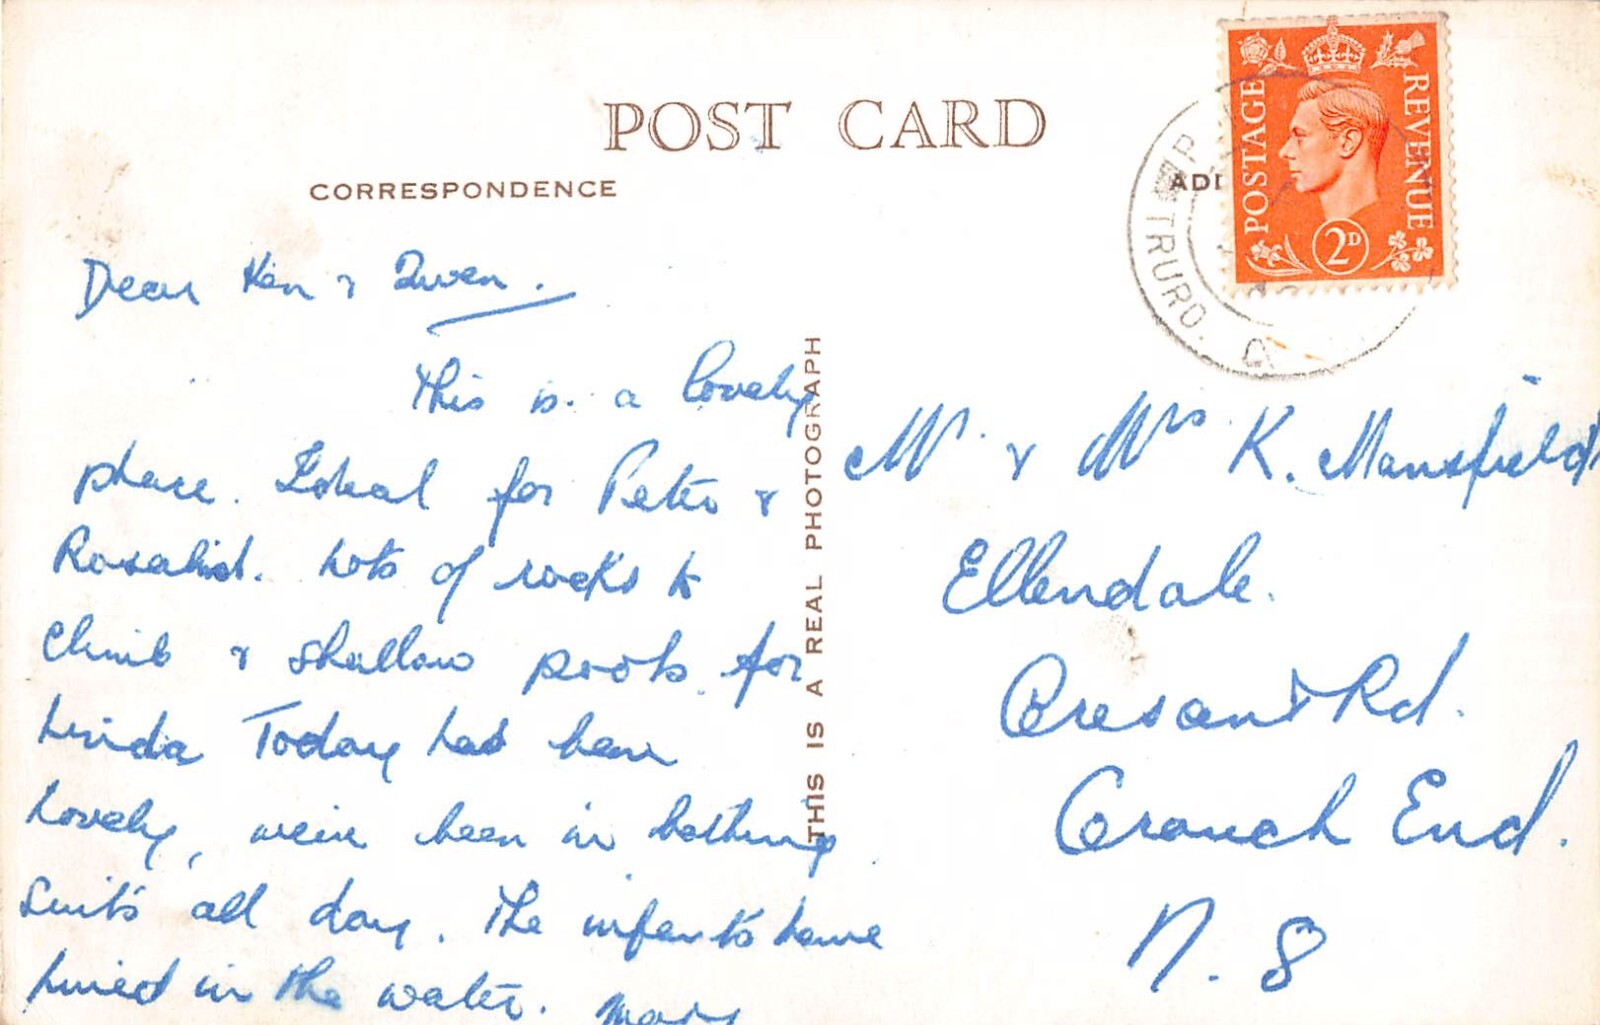 POST CARD
CORRESPONDENCE
ADD
POSTAGE
REVENUE
2D
TRURO.
THIS IS A REAL PHOTOGRAPH
Dear Ken & Gwen.
This is a lovely
place. Ideal for Peter &
Rosalind. Lots of rocks to
climb & shallow pools for
Linda Today has been
lovely, we've been in bathing
suits all day. The infants have
lived in the water. Mary
Mr & Mrs K. Mansfield
Ellendale.
Crescent Rd.
Crouch End.
N. 8